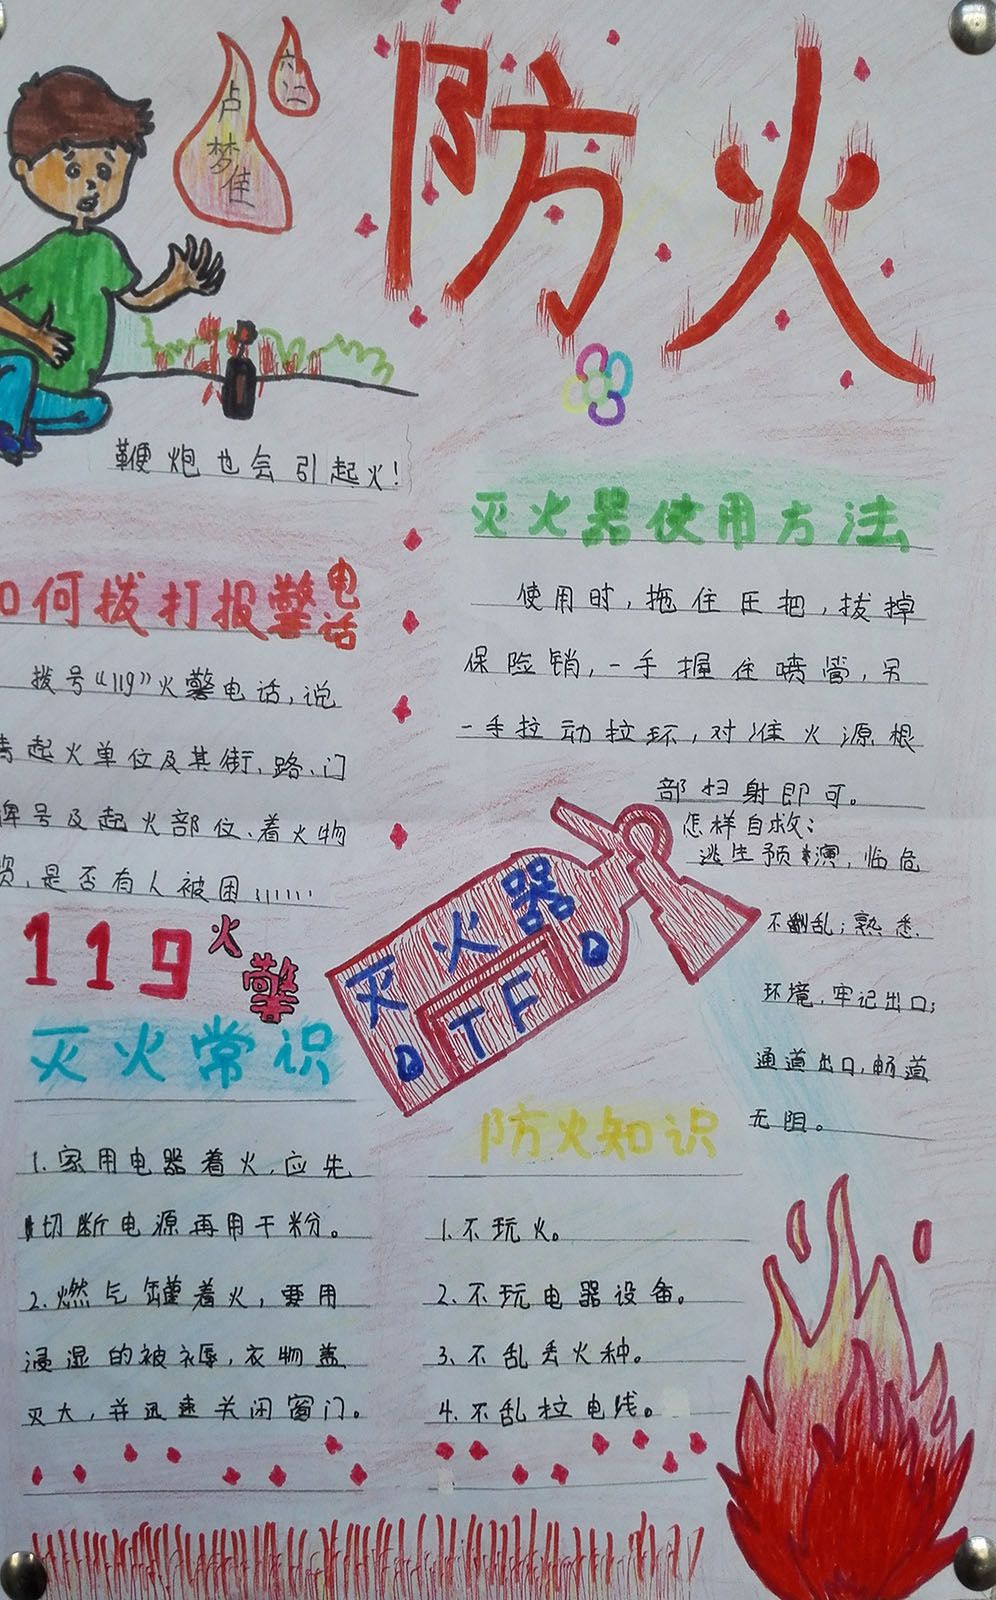 防火
六二
卢梦佳
鞭炮也会引起火！
何拨打报警电话
拨号“119”火警电话，说
起火单位及其街、路、门
牌号及起火部位、着火物
资，是否有人被困……
119火警
灭火器使用方法
使用时，拖住压把，拔掉
保险销，一手握住喷管，另
一手拉动拉环，对准火源根
部扫射即可。
怎样自救：
逃生预演，临危
不乱；熟悉
环境，牢记出口；
通道出口，畅道
无阻。
灭火器
TF
灭火常识
1.家用电器着火，应先
切断电源再用干粉。
2.燃气罐着火，要用
浸湿的被褥，衣物盖
灭大，并迅速关闭窗门。
防火知识
1.不玩火。
2.不玩电器设备。
3.不乱丢火种。
4.不乱拉电线。